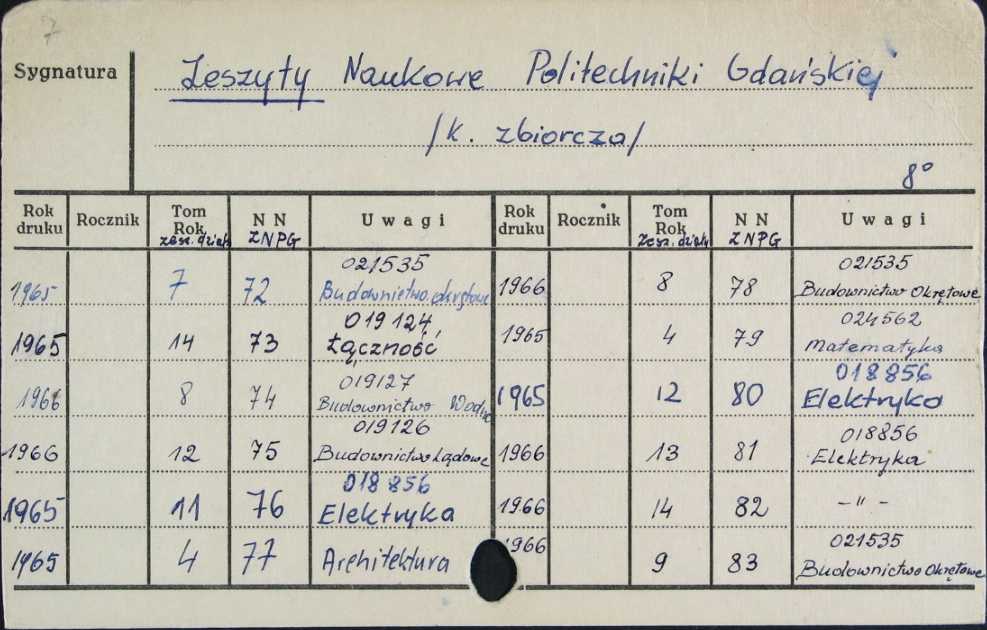 7
Sygnatura
Zeszyty Naukowe Politechniki Gdańskiej
/k. zbiorcza/
8°
Rok druku Rocznik Tom Rok zesz. działu N N ZNPG Uwagi Rok druku Rocznik Tom Rok Zesz. działu N N ZNPG Uwagi
1965 7 72 021535 Budownictwo okrętowe 1966 8 78 021535 Budownictwo Okrętowe
1965 14 73 019124 Łączność 1965 4 79 024562 Matematyka
1966 8 74 019127 Budownictwo Wodne 1965 12 80 018856 Elektryka
1966 12 75 019126 Budownictwo Lądowe 1966 13 81 018856 Elektryka
1965 11 76 018856 Elektryka 1966 14 82 -"-
1965 4 77 Architektura 1966 9 83 021535 Budownictwo Okrętowe